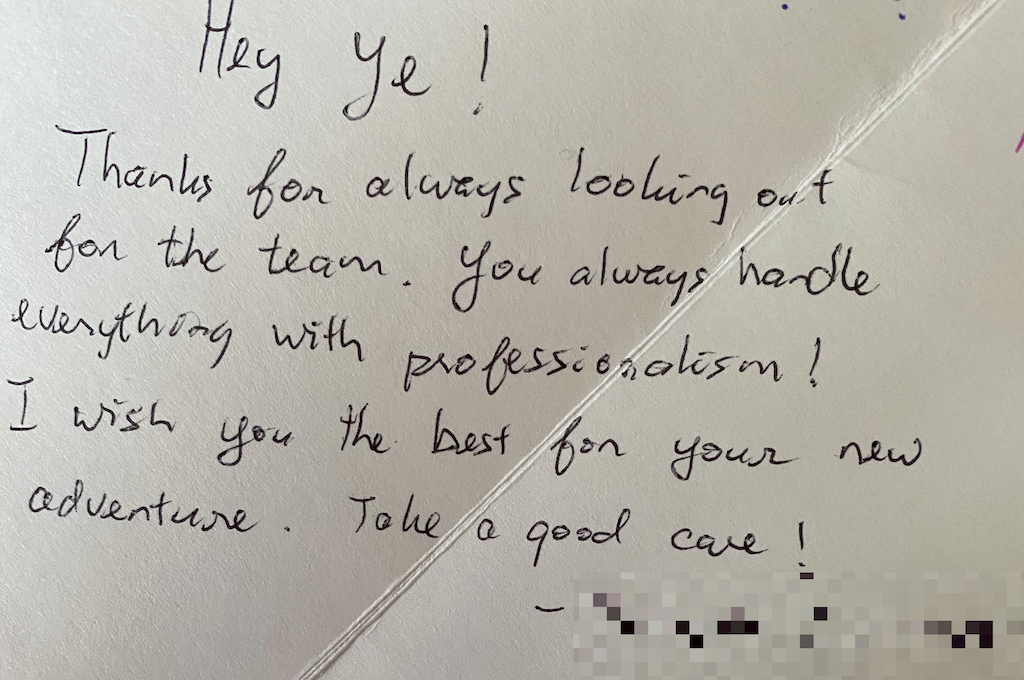 Hey Ye!
Thanks for always looking out
for the team. You always handle
everything with professionalism!
I wish you the best for your new
adventure. Take a good care!
-